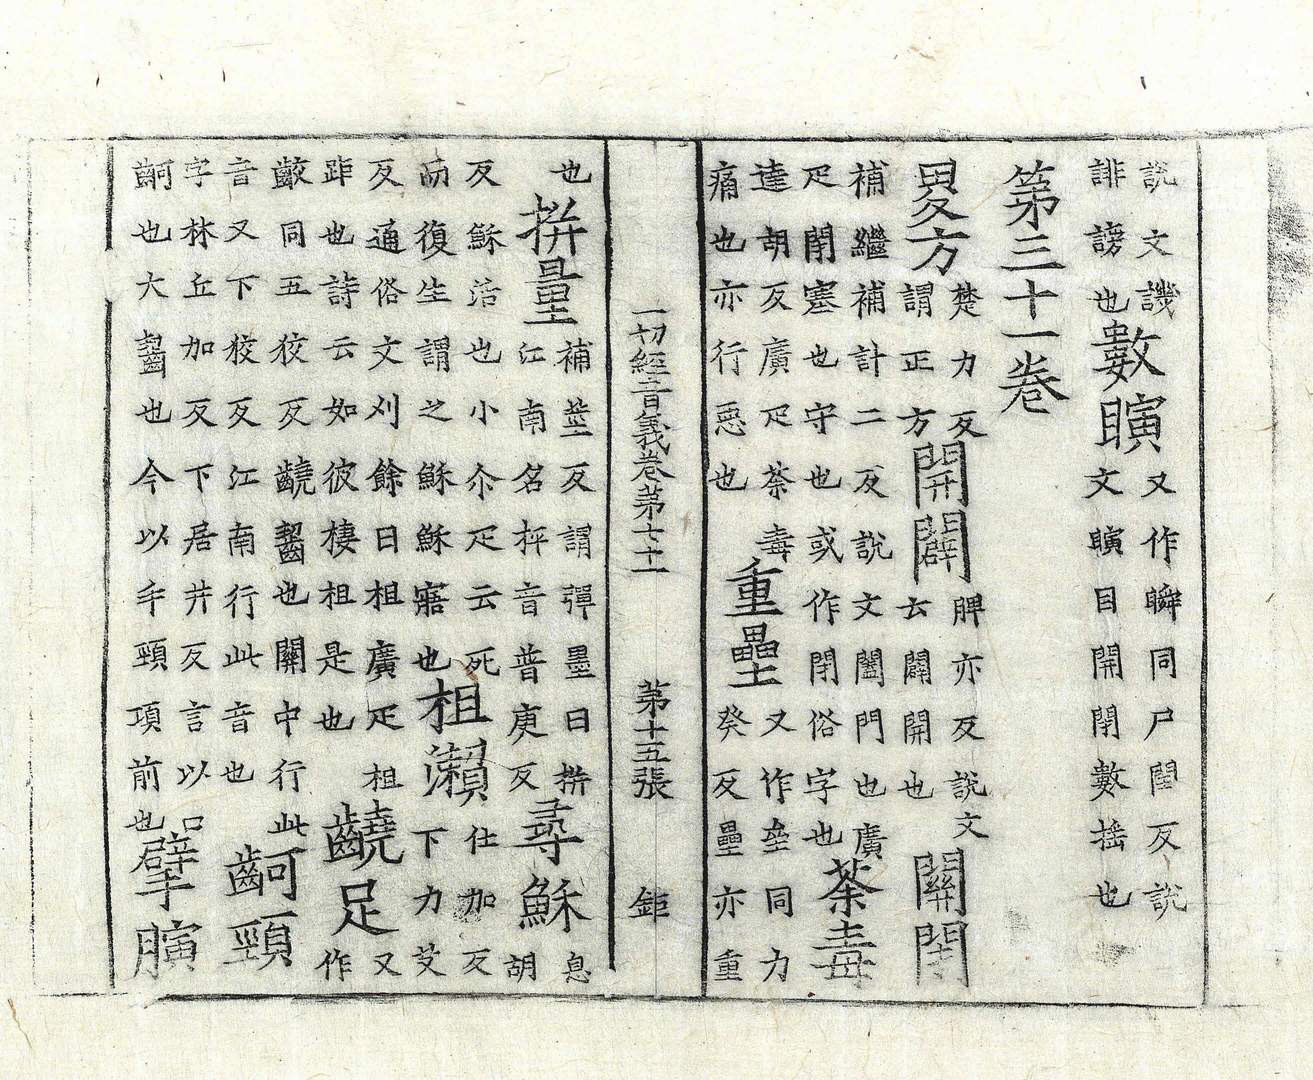 說文譏
誹謗也
數瞚
又作瞬同尸閏反說
文瞚目開閉數搖也
第三十一卷
畟方
楚力反
謂正方
開闢
脾亦反說文
云闢開也
關閉
補繼補計二反說文闔門也廣
疋閉塞也守也或作閇俗字也
荼毒
達胡反廣疋荼毒
痛也亦行惡也
重壘
又作垒同力
癸反壘亦重
一切經音義卷苐七十一 苐十五張 鉅
也
拼量
補莖反謂彈墨曰拼
江南名抨音普庚反
尋穌
息
胡
反穌活也小尒疋云死
而復生謂之穌穌寤也
柤瀨
仕加反
下力艾
反通俗文刈餘曰柤廣疋柤
距也詩云如彼棲柤是也
䶧足
又
作
同五狡反䶧齧也關中行此
音又下狡反江南行此音也
䶗頸
字林丘加反下居井反言以口
䶗也大齧也今以手頸項前也
擘